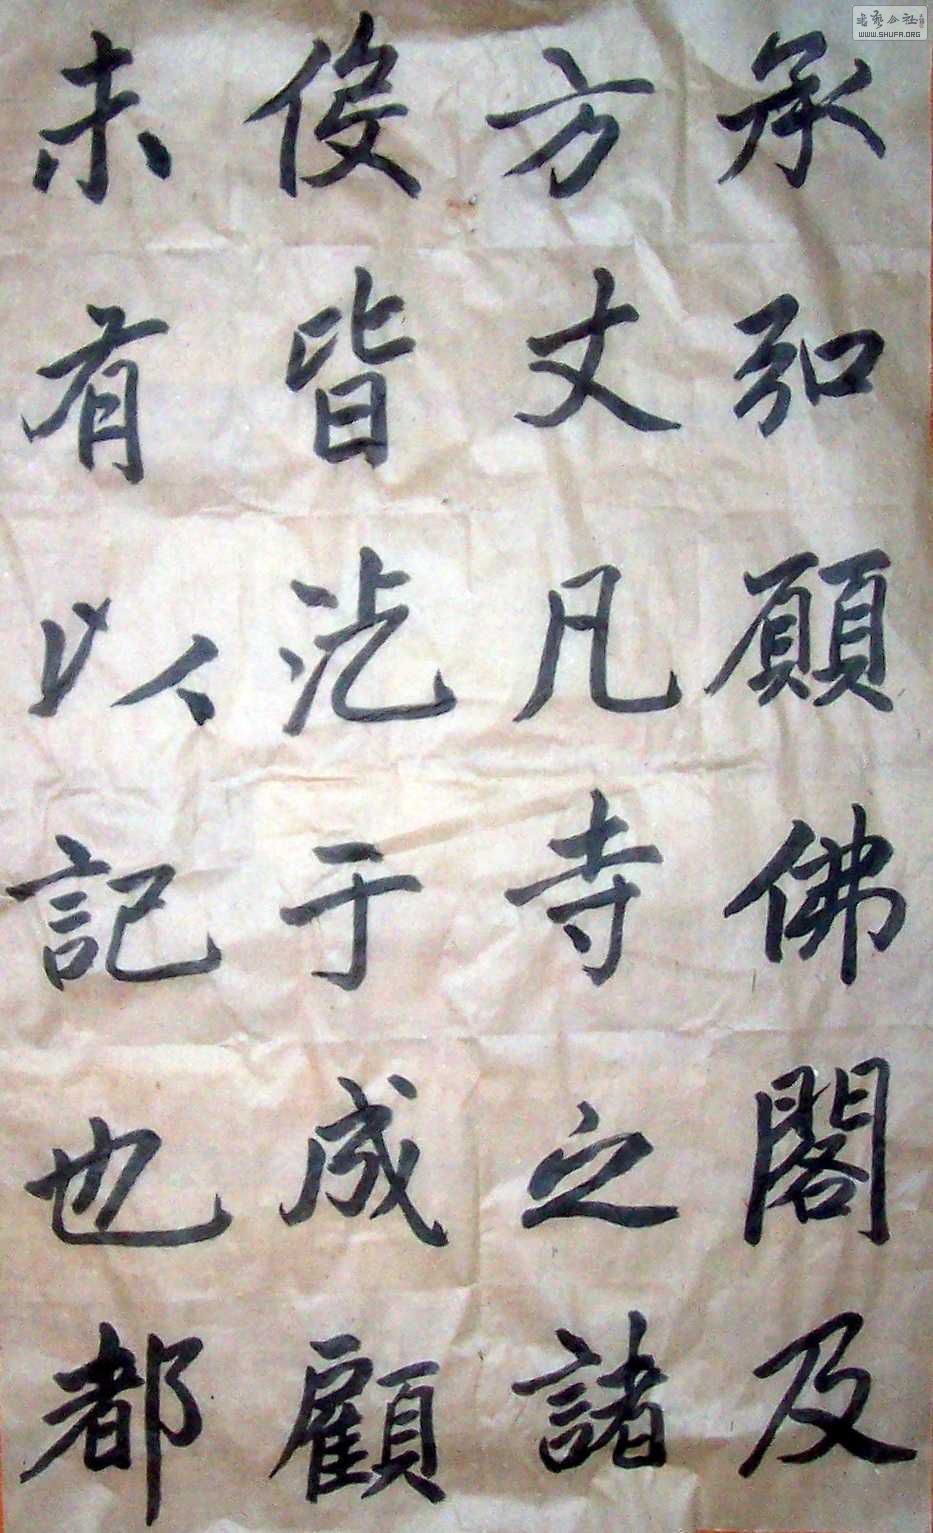 承弘願佛閣及
方丈凡寺之諸
役皆汔于成顧
未有以記也都
書藝公社
WWW.SHUFA.ORG